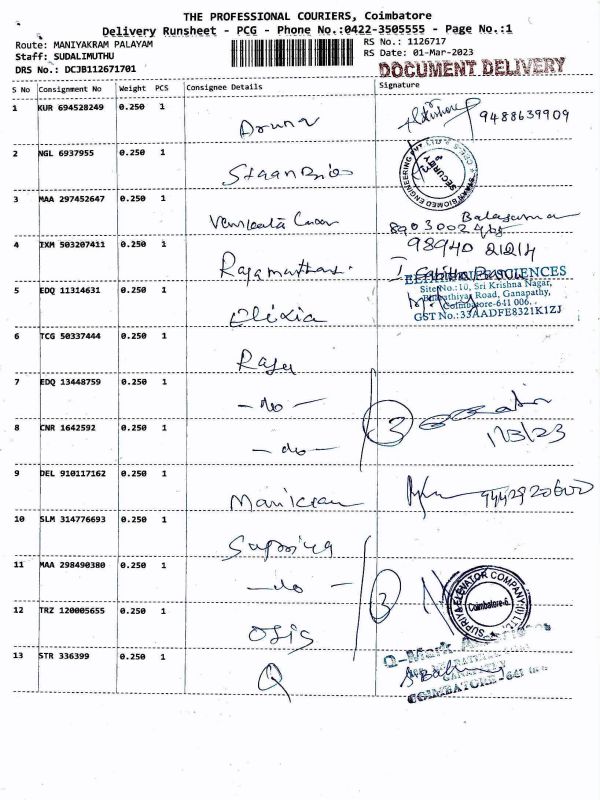 THE PROFESSIONAL COURIERS, Coimbatore
Delivery Runsheet - PCG - Phone No.:0422-3505555 - Page No.:1
Route: MANIYAKRAM PALAYAM
RS No.: 1126717
Staff: SUDALIMUTHU
RS Date: 01-Mar-2023
DRS No.: DCJB112671701
DOCUMENT DELIVERY
S No Consignment No Weight PCS Consignee Details Signature
1 KUR 694528249 0.250 1 Aruna 9488639909
2 NGL 6937955 0.250 1 Staan Bio
SECURITY
3 MAA 297452647 0.250 1
4 IXM 503207411 0.250 1 98940 21214
ELIXIR LIFE SCIENCES
Site No.:10, Sri Krishna Nagar,
Bharathiyar Road, Ganapathy,
Coimbatore-641 006.
GST No.:33AADFE8321K1ZJ
5 EDQ 11314631 0.250 1
6 TCG 50337444 0.250 1 Raju
7 EDQ 13448759 0.250 1 - do - 3
8 CNR 1642592 0.250 1 - do - 1/3/23
9 DEL 910117162 0.250 1 Manickam
10 SLM 314776693 0.250 1 Supriya
11 MAA 298490380 0.250 1 - do - 3
SUPRIYA ELEVATOR COMPANY (I) LTD
Coimbatore-6.
12 TRZ 120005655 0.250 1
13 STR 336399 0.250 1 Q
Q-Mark
COIMBATORE - 641